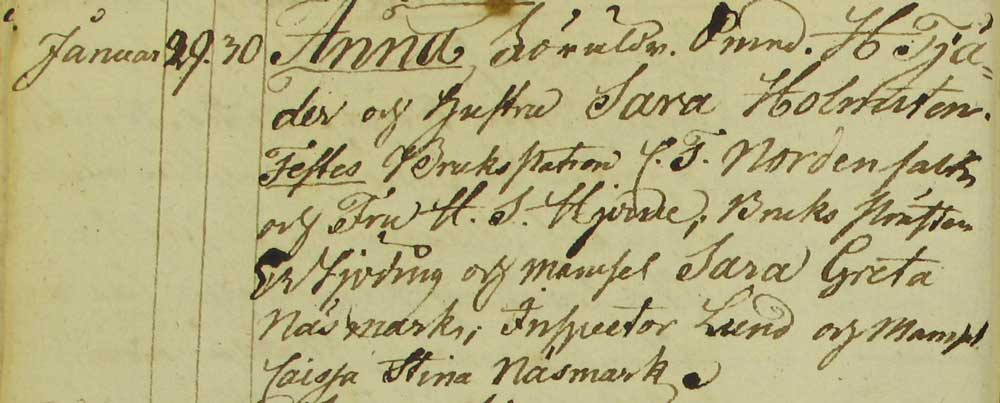 Januar 29. 30 Anna, Föräldr. Omnd. H Tjä=
der och Hustru Sara Holmsten.
Testes Bruks patron C. F. Nordenfalk
och Fru H. S. Hjerne, Bruks Prästen
och Mamsel Sara Greta
Näsmark, Inspector Lund och Mamsel
Caissa Stina Näsmark